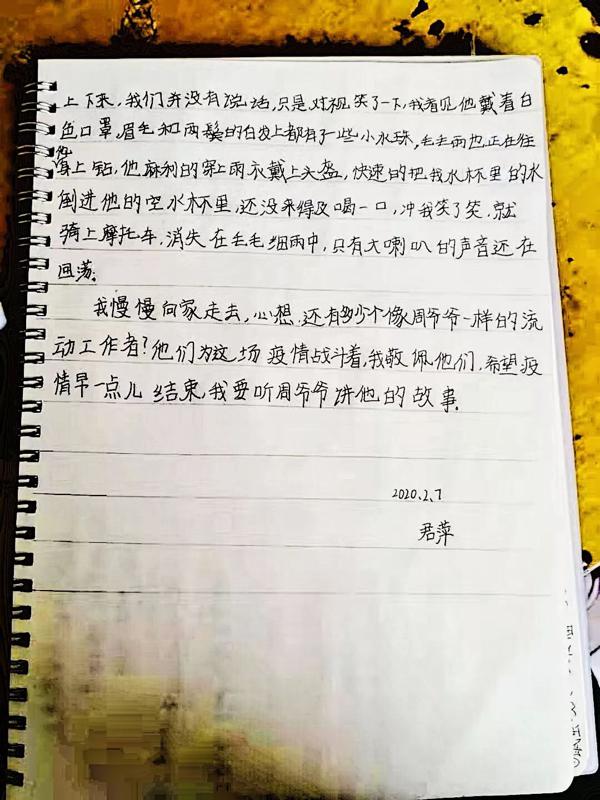 上下来,我们并没有说话,只是对视笑了一下,我看见他戴着白
色口罩,眉毛和两鬓的白发上都有了一些小水珠,毛毛雨也正在往
他
身上钻,他麻利的穿上雨衣戴上头盔,快速的把我水杯里的水
倒进他的空水杯里,还没来得及喝一口,冲我笑了笑,就
骑上摩托车,消失在毛毛细雨中,只有大喇叭的声音还在
回荡。
我慢慢向家走去,心想,还有多少个像周爷爷一样的流
动工作者?他们为这场疫情战斗着,我敬佩他们,希望疫
情早一点儿结束,我要听周爷爷讲他的故事.
2020.2.7
君萍